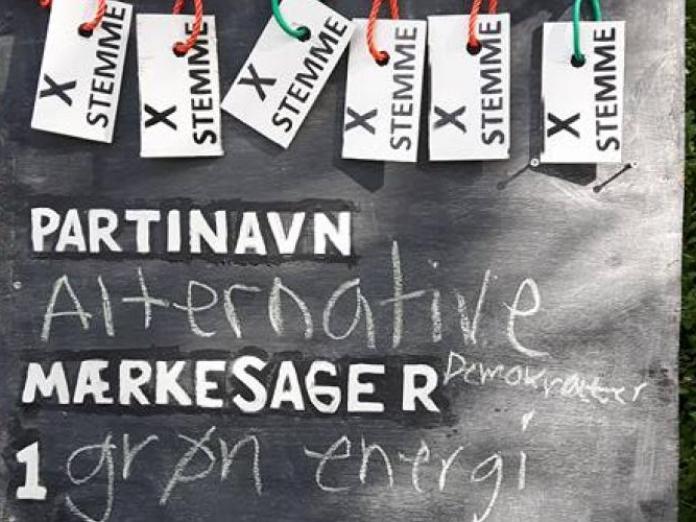 X STEMME
X STEMME
X STEMME
X STEMME
X STEMME
X STEMME
PARTINAVN
Alternative
Demokrater
MÆRKESAGER
1 grøn energi